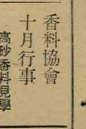 香料協會
十月行事
高砂香料見學